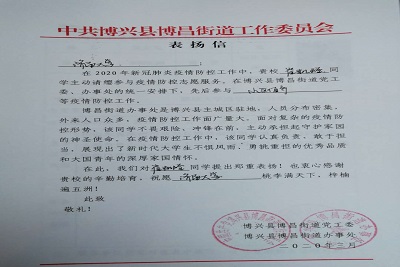 中共博兴县博昌街道工作委员会
表扬信
济南大学：
在2020年新冠肺炎疫情防控工作中，贵校 同
学主动请缨参与疫情防控志愿服务。在博兴县博昌街道党工
委、办事处的统一安排下，先后参与
等疫情防控工作。
博昌街道办事处是博兴县主城区驻地，人员分布密集，
外来人口众多，疫情防控工作面广量大。面对复杂的疫情防
控形势，该同学不畏艰险，冲锋在前，主动承担起守护家园
的神圣使命。在疫情防控工作中，该同学认真负责、敢于担
当，展现出了新时代大学生不惧风雨、勇挑重担的优秀品质
和大国青年的深厚家国情怀。
在此，我们对 同学提出郑重表扬！也衷心感谢
贵校的辛勤培育，祝愿 济南大学 桃李满天下，梓楠
遍五洲！
此致
敬礼！
博兴县博昌街道党工委
博兴县博昌街道办事处
二〇二〇年三月